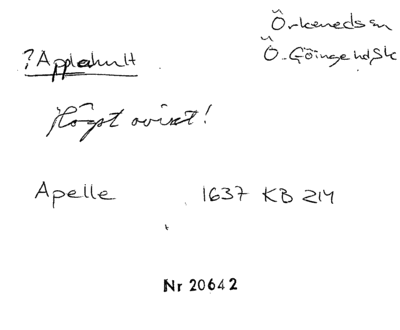 Örkeneds sn
?Applehult Ö. Göinge hd, Sk
Högst ovisst!
Apelle 1637 KB 214
Nr 20642